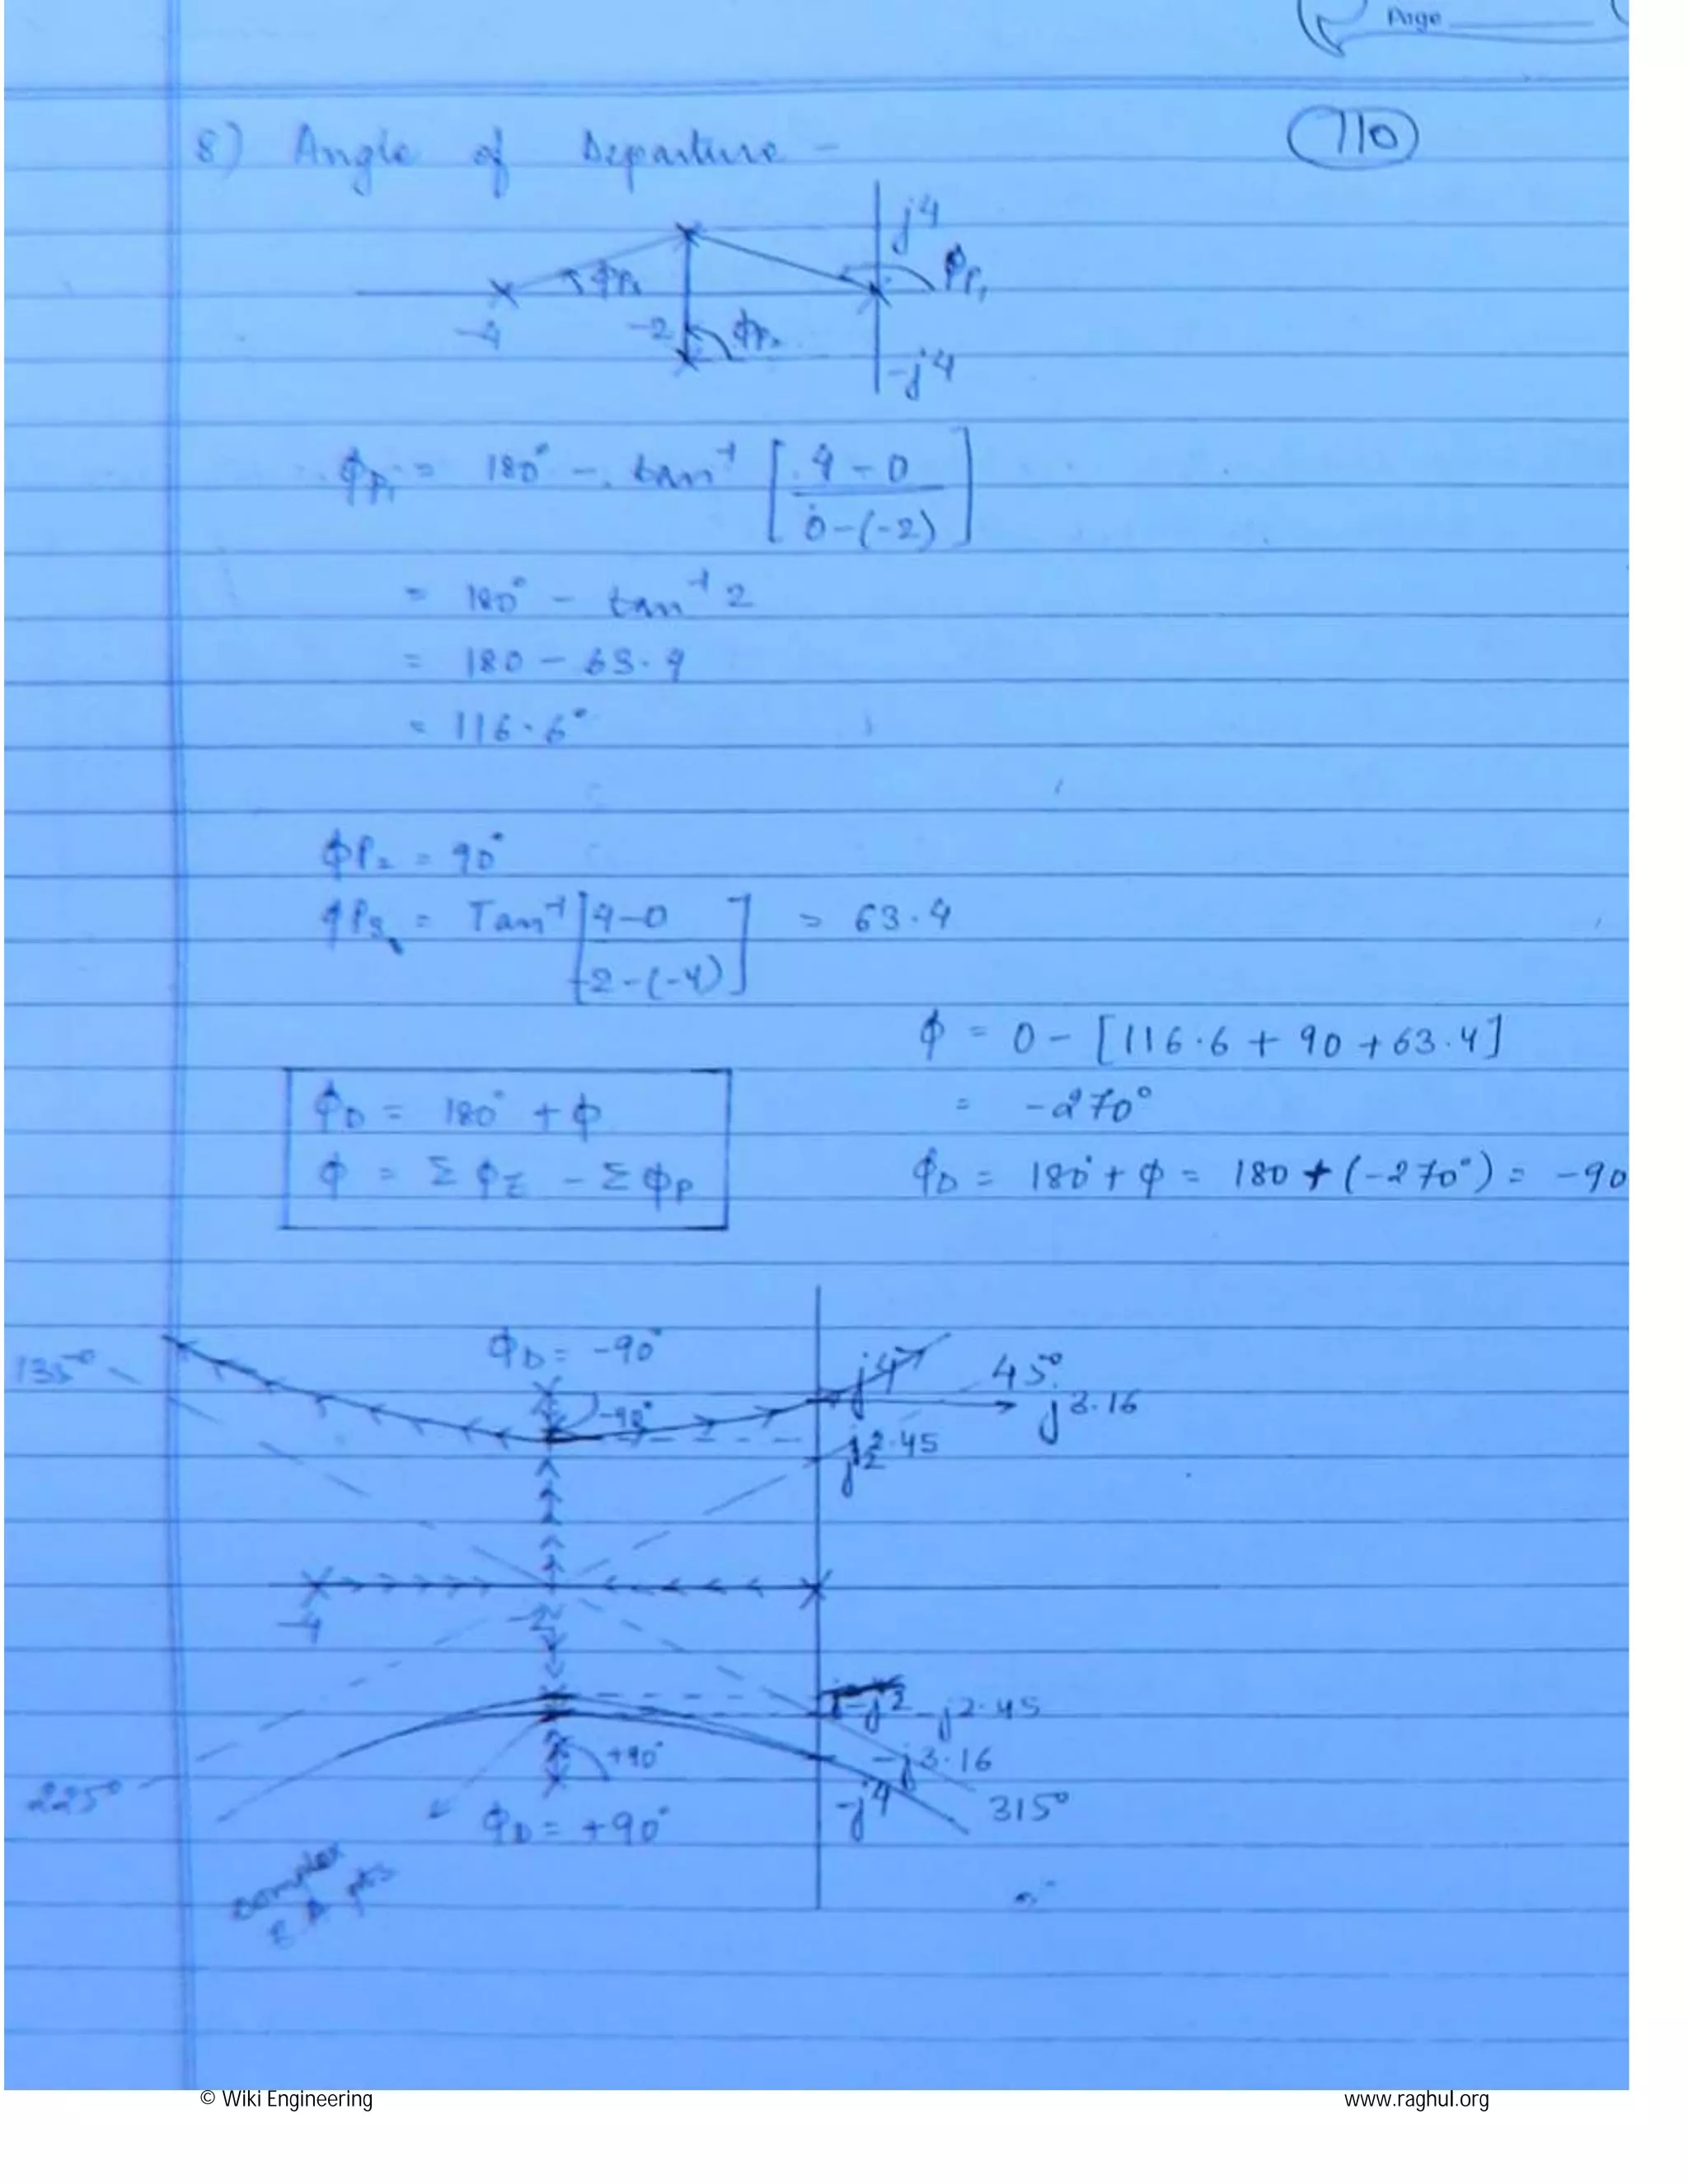 Page
110
8) Angle of Departure -
j4
ϕP1
ϕP3
-4
-2
ϕP2
-j4
ϕP1 = 180° - tan⁻¹ [4-0 / 0-(-2)]
= 180° - tan⁻¹ 2
= 180 - 63.4
= 116.6°
ϕP2 = 90°
ϕP3 = Tan⁻¹ [4-0 / -2-(-4)] = 63.4
ϕ = 0 - [116.6 + 90 + 63.4]
= -270°
ϕD = 180° + ϕ
ϕ = Σϕz - ΣϕP
ϕD = 180° + ϕ = 180 + (-270°) = -90
135°
ϕD = -90°
-90°
j4
45°
j3.16
j2.45
-4
-2
-j2
-j2.45
-j3.16
+90°
-j4
225°
ϕD = +90°
315°
complex
B.A pts
© Wiki Engineering
www.raghul.org